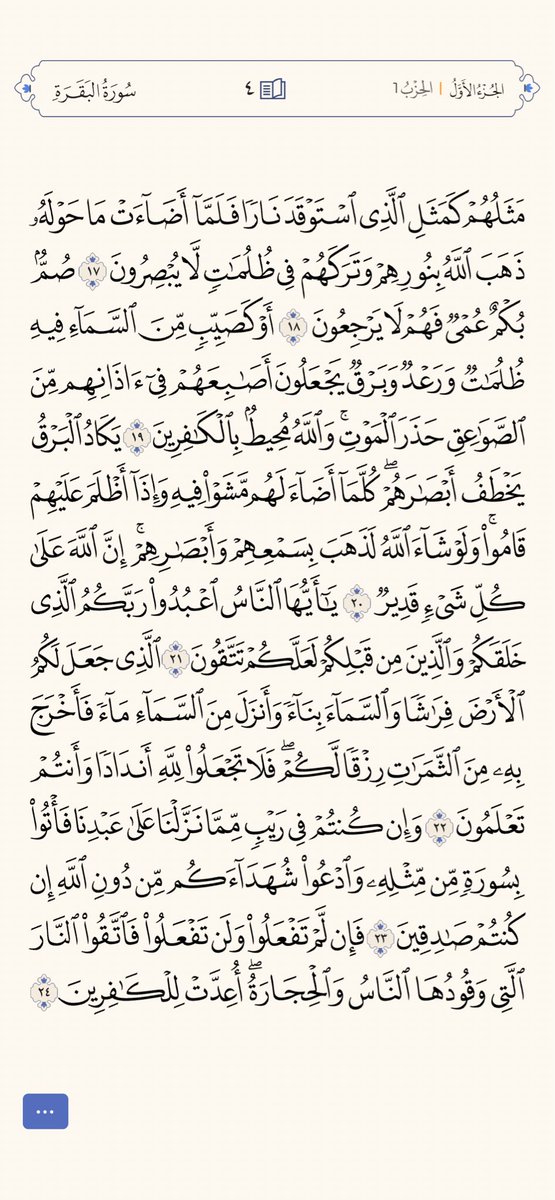 سُورَةُ البَقَرَةِ ٤ الحِزْبُ ١ | الجُزْءُ الأَوَّلُ
مَثَلُهُمْ كَمَثَلِ ٱلَّذِى ٱسْتَوْقَدَ نَارًا فَلَمَّآ أَضَآءَتْ مَا حَوْلَهُۥ
ذَهَبَ ٱللَّهُ بِنُورِهِمْ وَتَرَكَهُمْ فِى ظُلُمَٰتٍ لَّا يُبْصِرُونَ ١٧ صُمٌّۢ
بُكْمٌ عُمْىٌ فَهُمْ لَا يَرْجِعُونَ ١٨ أَوْ كَصَيِّبٍ مِّنَ ٱلسَّمَآءِ فِيهِ
ظُلُمَٰتٌ وَرَعْدٌ وَبَرْقٌ يَجْعَلُونَ أَصَٰبِعَهُمْ فِىٓ ءَاذَانِهِم مِّنَ
ٱلصَّوَٰعِقِ حَذَرَ ٱلْمَوْتِ ۚ وَٱللَّهُ مُحِيطٌۢ بِٱلْكَٰفِرِينَ ١٩ يَكَادُ ٱلْبَرْقُ
يَخْطَفُ أَبْصَٰرَهُمْ ۖ كُلَّمَآ أَضَآءَ لَهُم مَّشَوْا۟ فِيهِ وَإِذَآ أَظْلَمَ عَلَيْهِمْ
قَامُوا۟ ۚ وَلَوْ شَآءَ ٱللَّهُ لَذَهَبَ بِسَمْعِهِمْ وَأَبْصَٰرِهِمْ ۚ إِنَّ ٱللَّهَ عَلَىٰ
كُلِّ شَىْءٍ قَدِيرٌ ٢٠ يَٰٓأَيُّهَا ٱلنَّاسُ ٱعْبُدُوا۟ رَبَّكُمُ ٱلَّذِى
خَلَقَكُمْ وَٱلَّذِينَ مِن قَبْلِكُمْ لَعَلَّكُمْ تَتَّقُونَ ٢١ ٱلَّذِى جَعَلَ لَكُمُ
ٱلْأَرْضَ فِرَٰشًا وَٱلسَّمَآءَ بِنَآءً وَأَنزَلَ مِنَ ٱلسَّمَآءِ مَآءً فَأَخْرَجَ
بِهِۦ مِنَ ٱلثَّمَرَٰتِ رِزْقًا لَّكُمْ ۖ فَلَا تَجْعَلُوا۟ لِلَّهِ أَندَادًا وَأَنتُمْ
تَعْلَمُونَ ٢٢ وَإِن كُنتُمْ فِى رَيْبٍ مِّمَّا نَزَّلْنَا عَلَىٰ عَبْدِنَا فَأْتُوا۟
بِسُورَةٍ مِّن مِّثْلِهِۦ وَٱدْعُوا۟ شُهَدَآءَكُم مِّن دُونِ ٱللَّهِ إِن
كُنتُمْ صَٰدِقِينَ ٢٣ فَإِن لَّمْ تَفْعَلُوا۟ وَلَن تَفْعَلُوا۟ فَٱتَّقُوا۟ ٱلنَّارَ
ٱلَّتِى وَقُودُهَا ٱلنَّاسُ وَٱلْحِجَارَةُ ۖ أُعِدَّتْ لِلْكَٰفِرِينَ ٢٤